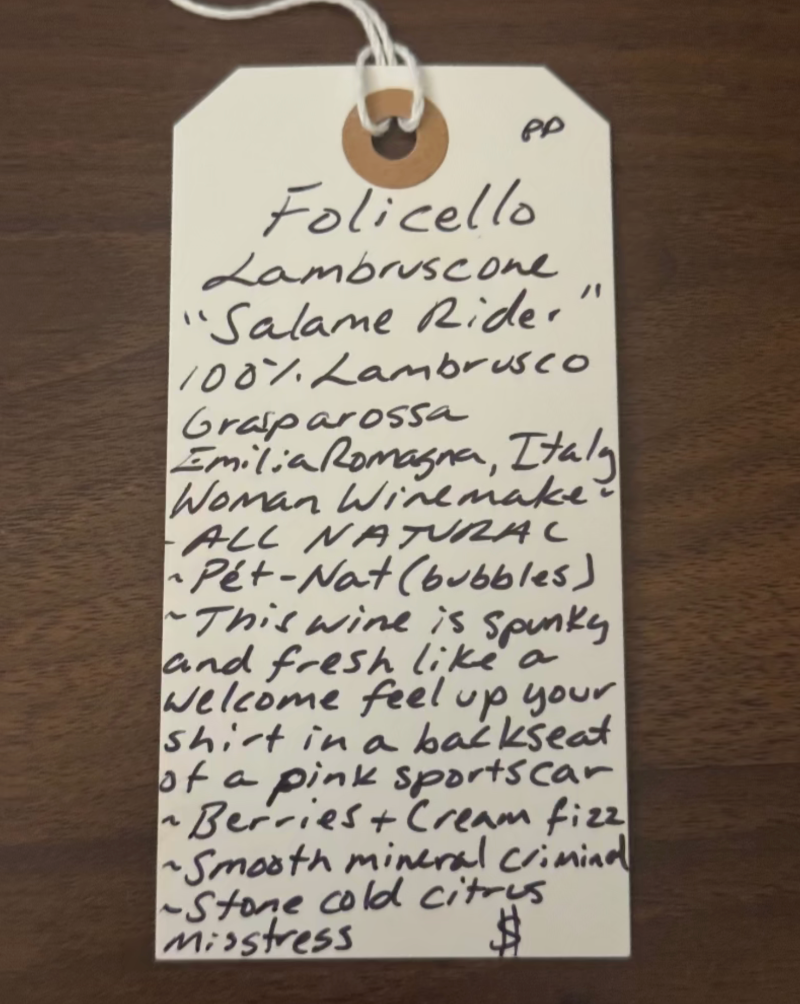 PP
Folicello
Lambruscone
"Salame Rider"
100% Lambrusco
Grasparossa
Emilia Romagna, Italy
Woman Winemaker
-ALL NATURAL
~Pét-Nat (bubbles)
~This wine is spunky
and fresh like a
welcome feel up your
shirt in a backseat
of a pink sportscar
~Berries + Cream fizz
~Smooth mineral criminal
~Stone cold citrus
misstress $